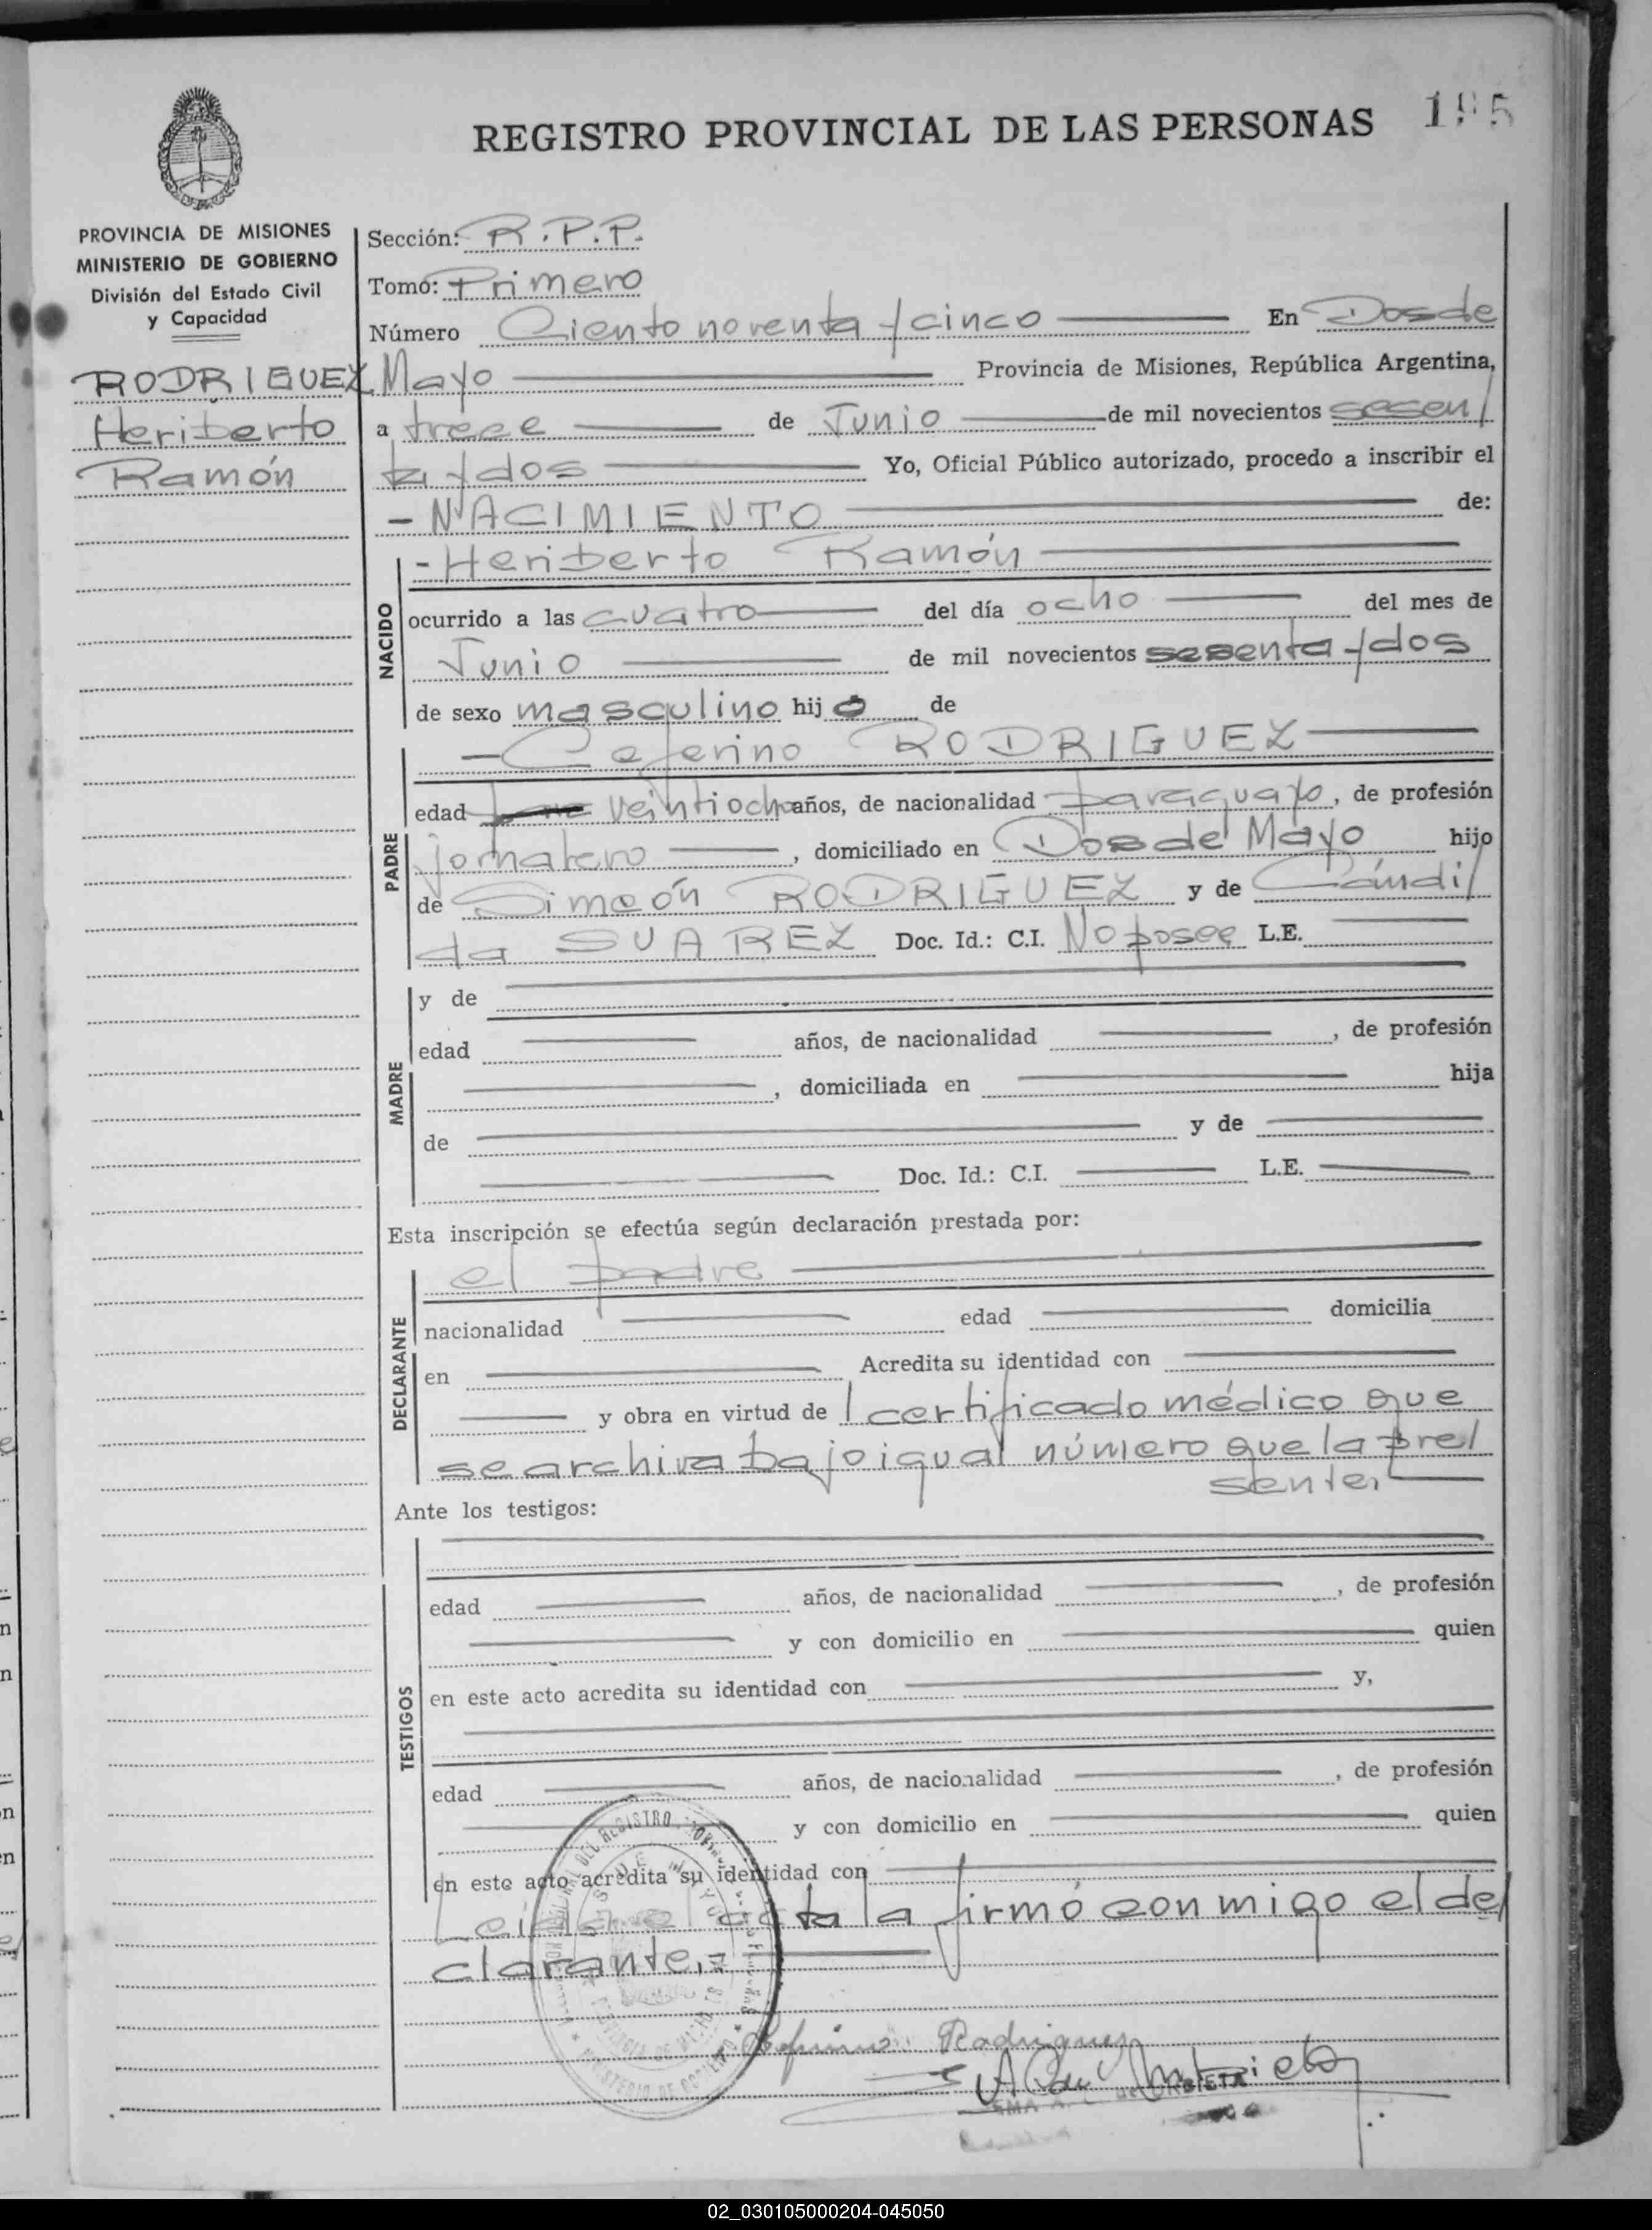 195
REGISTRO PROVINCIAL DE LAS PERSONAS
PROVINCIA DE MISIONES
MINISTERIO DE GOBIERNO
División del Estado Civil
y Capacidad
RODRIGUEZ
Heriberto
Ramón
Sección: R.P.P.
Tomo: Primero
Número Ciento noventa y cinco En Dos de
Mayo Provincia de Misiones, República Argentina,
a trece de Junio de mil novecientos sesen/
ta y dos Yo, Oficial Público autorizado, procedo a inscribir el
- NACIMIENTO de:
NACIDO
- Heriberto Ramón
ocurrido a las cuatro del día ocho del mes de
Junio de mil novecientos sesenta y dos
de sexo masculino hijo de
PADRE
- Ceferino RODRIGUEZ
edad veintiocho años, de nacionalidad paraguayo, de profesión
jornalero, domiciliado en Dos de Mayo hijo
de Simeón RODRIGUEZ y de Cándi/
da SUAREZ Doc. Id.: C.I. No posee L.E.
MADRE
y de
edad años, de nacionalidad , de profesión
, domiciliada en hija
de y de
Doc. Id.: C.I. L.E.
Esta inscripción se efectúa según declaración prestada por:
DECLARANTE
el padre
nacionalidad edad domicilia
en Acredita su identidad con
y obra en virtud de l certificado médico que
se archiva bajo igual número que la pre/
sente.
Ante los testigos:
TESTIGOS
edad años, de nacionalidad , de profesión
y con domicilio en quien
en este acto acredita su identidad con y,
edad años, de nacionalidad , de profesión
y con domicilio en quien
en este acto acredita su identidad con
Leída el acta la firmó conmigo el de/
clarante.=
DEL REGISTRO
MINISTERIO DE GOBIERNO
Rodriguez
02_030105000204-045050